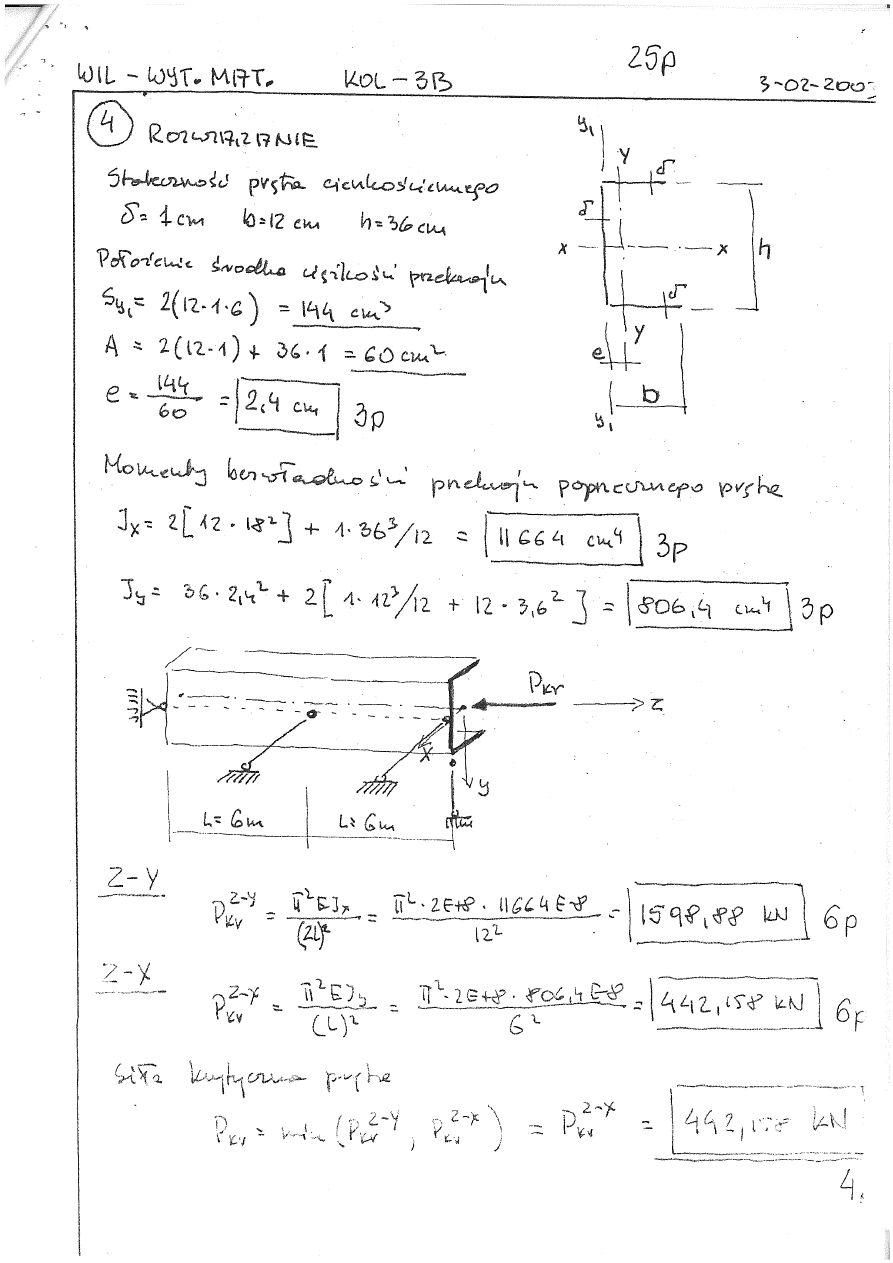 25p
WIL - WYT. MAT. KOL - 3B 3-02-200
4 ROZWIĄZANIE
Stateczność pręta cienkościennego
δ = 1 cm b = 12 cm h = 36 cm
Położenie środka ciężkości przekroju
Sy₁ = 2(12·1·6) = 144 cm³
A = 2(12·1) + 36·1 = 60 cm²
e = 144/60 = 2,4 cm 3p
y₁ y δ
δ
x x h
δ
y
e
b
y₁
Momenty bezwładności przekroju poprzecznego pręta
Jx = 2[12·18²] + 1·36³/12 = 11664 cm⁴ 3p
Jy = 36·2,4² + 2[1·12³/12 + 12·3,6²] = 806,4 cm⁴ 3p
Pkr z
x
y
L = 6m L = 6m
Z-Y
Pkr^Z-Y = π²EJx/(2L)² = π²·2E+8·11664E-8/12² = 1598,88 kN 6p
Z-X
Pkr^Z-X = π²EJy/(L)² = π²·2E+8·806,4E-8/6² = 442,158 kN 6p
Siła krytyczna pręta
Pkr = min(Pkr^Z-Y, Pkr^Z-X) = Pkr^Z-X = 442,158 kN
4